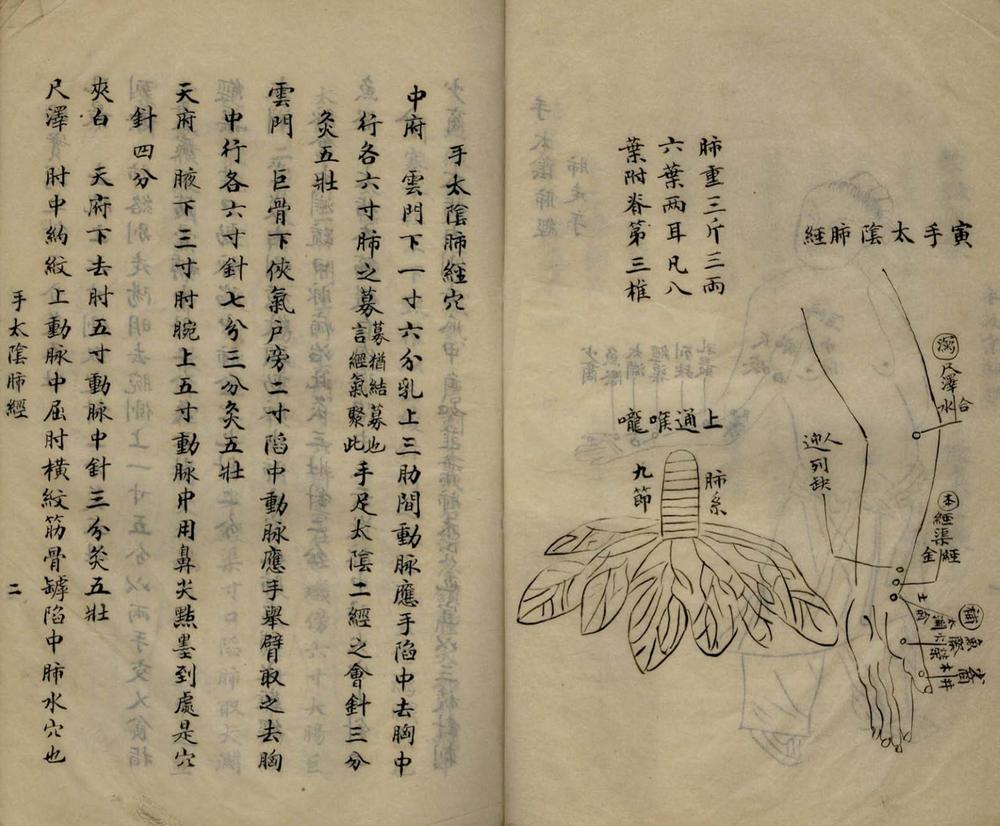 寅手太陰肺經
肺重三斤三兩
六葉兩耳凡八
葉附脊第三椎
上通喉嚨
肺系
九節
瀉
尺澤
水
合
人迎
列缺
本
經渠
金
經
補
土
木
井
手太陰肺經穴
中府 雲門下一寸六分乳上三肋間動脉應手陷中去胸中
行各六寸肺之募募猶結募也言經氣聚此手足太陰二經之會針三分
灸五壯
雲門 巨骨下俠氣戶旁二寸陷中動脉應手舉臂取之去胸
中行各六寸針七分三分灸五壯
天府 腋下三寸肘腕上五寸動脉中用鼻尖點墨到處是穴
針四分
夾白 天府下去肘五寸動脉中針三分灸五壯
尺澤 肘中約紋上動脉中屈肘橫紋筋骨罅陷中肺水穴也
手太陰肺經 二